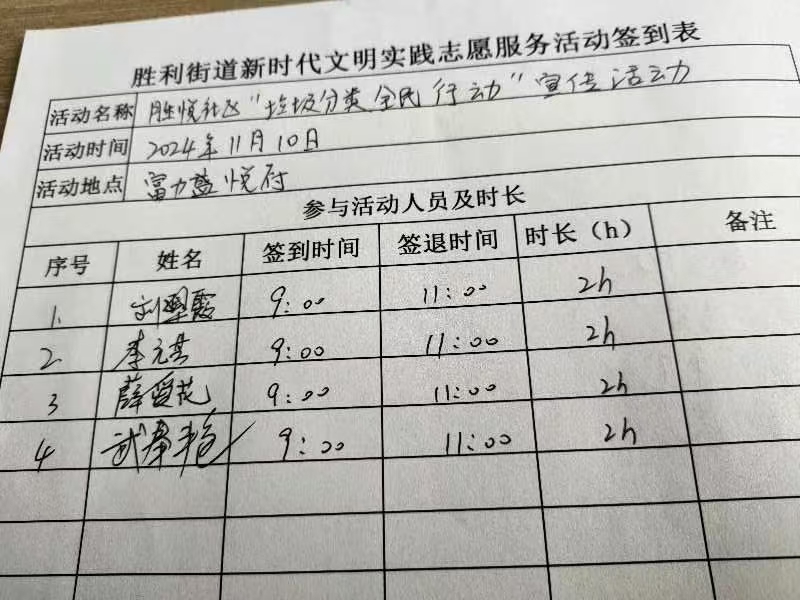 胜利街道新时代文明实践志愿服务活动签到表
活动名称 胜悦社区"垃圾分类全民行动"宣传活动
活动时间 2024年11月10日
活动地点 富力盛悦府
参与活动人员及时长
序号 姓名 签到时间 签退时间 时长（h） 备注
1. 刘 霞 9:00 11:00 2h
2 李元 9:00 11:00 2h
3 薛爱花 9:00 11:00 2h
4 武 9:00 11:00 2h